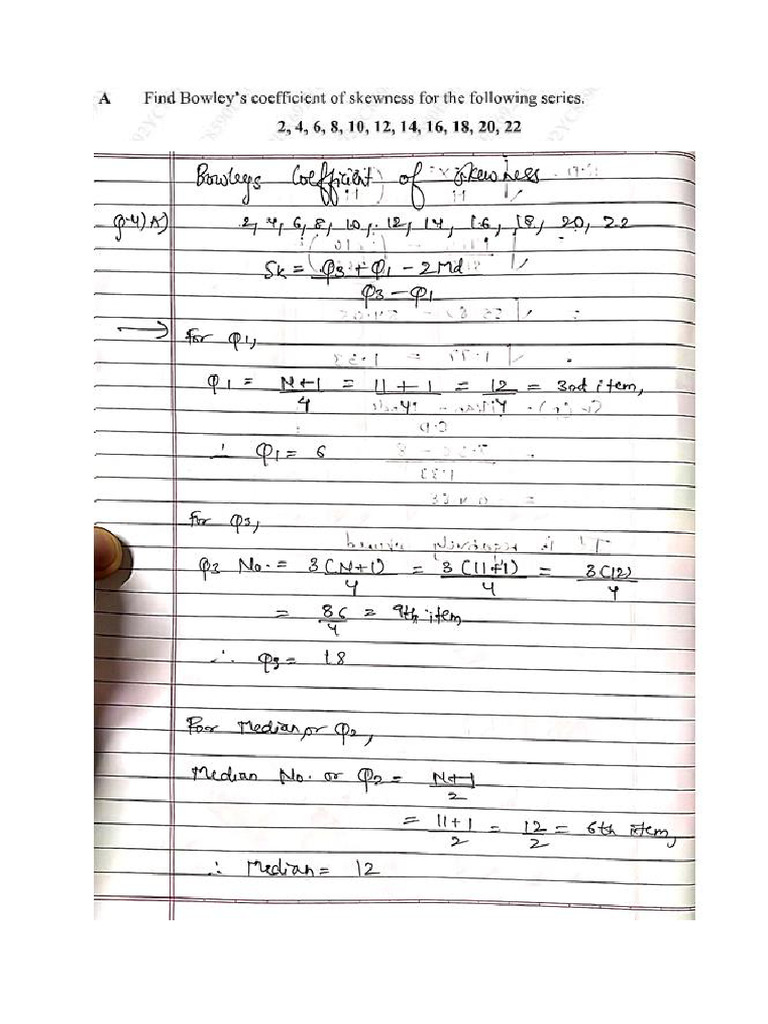 A Find Bowley's coefficient of skewness for the following series.
2, 4, 6, 8, 10, 12, 14, 16, 18, 20, 22
Bowleys Coefficient of Skewness
Q-4) A) 2, 4, 6, 8, 10, 12, 14, 16, 18, 20, 22
Sk = Q3 + Q1 - 2Md
Q3 - Q1
→ For Q1,
Q1 = N+1 = 11 + 1 = 12 = 3rd item,
4
∴ Q1 = 6
For Q3,
Q3 No. = 3(N+1) = 3(11+1) = 3(12)
4 4 4
= 36 = 9th item
4
∴ Q3 = 18
For Median or Q2,
Median No. or Q2 = N+1
2
= 11+1 = 12 = 6th item,
2 2
∴ Median = 12